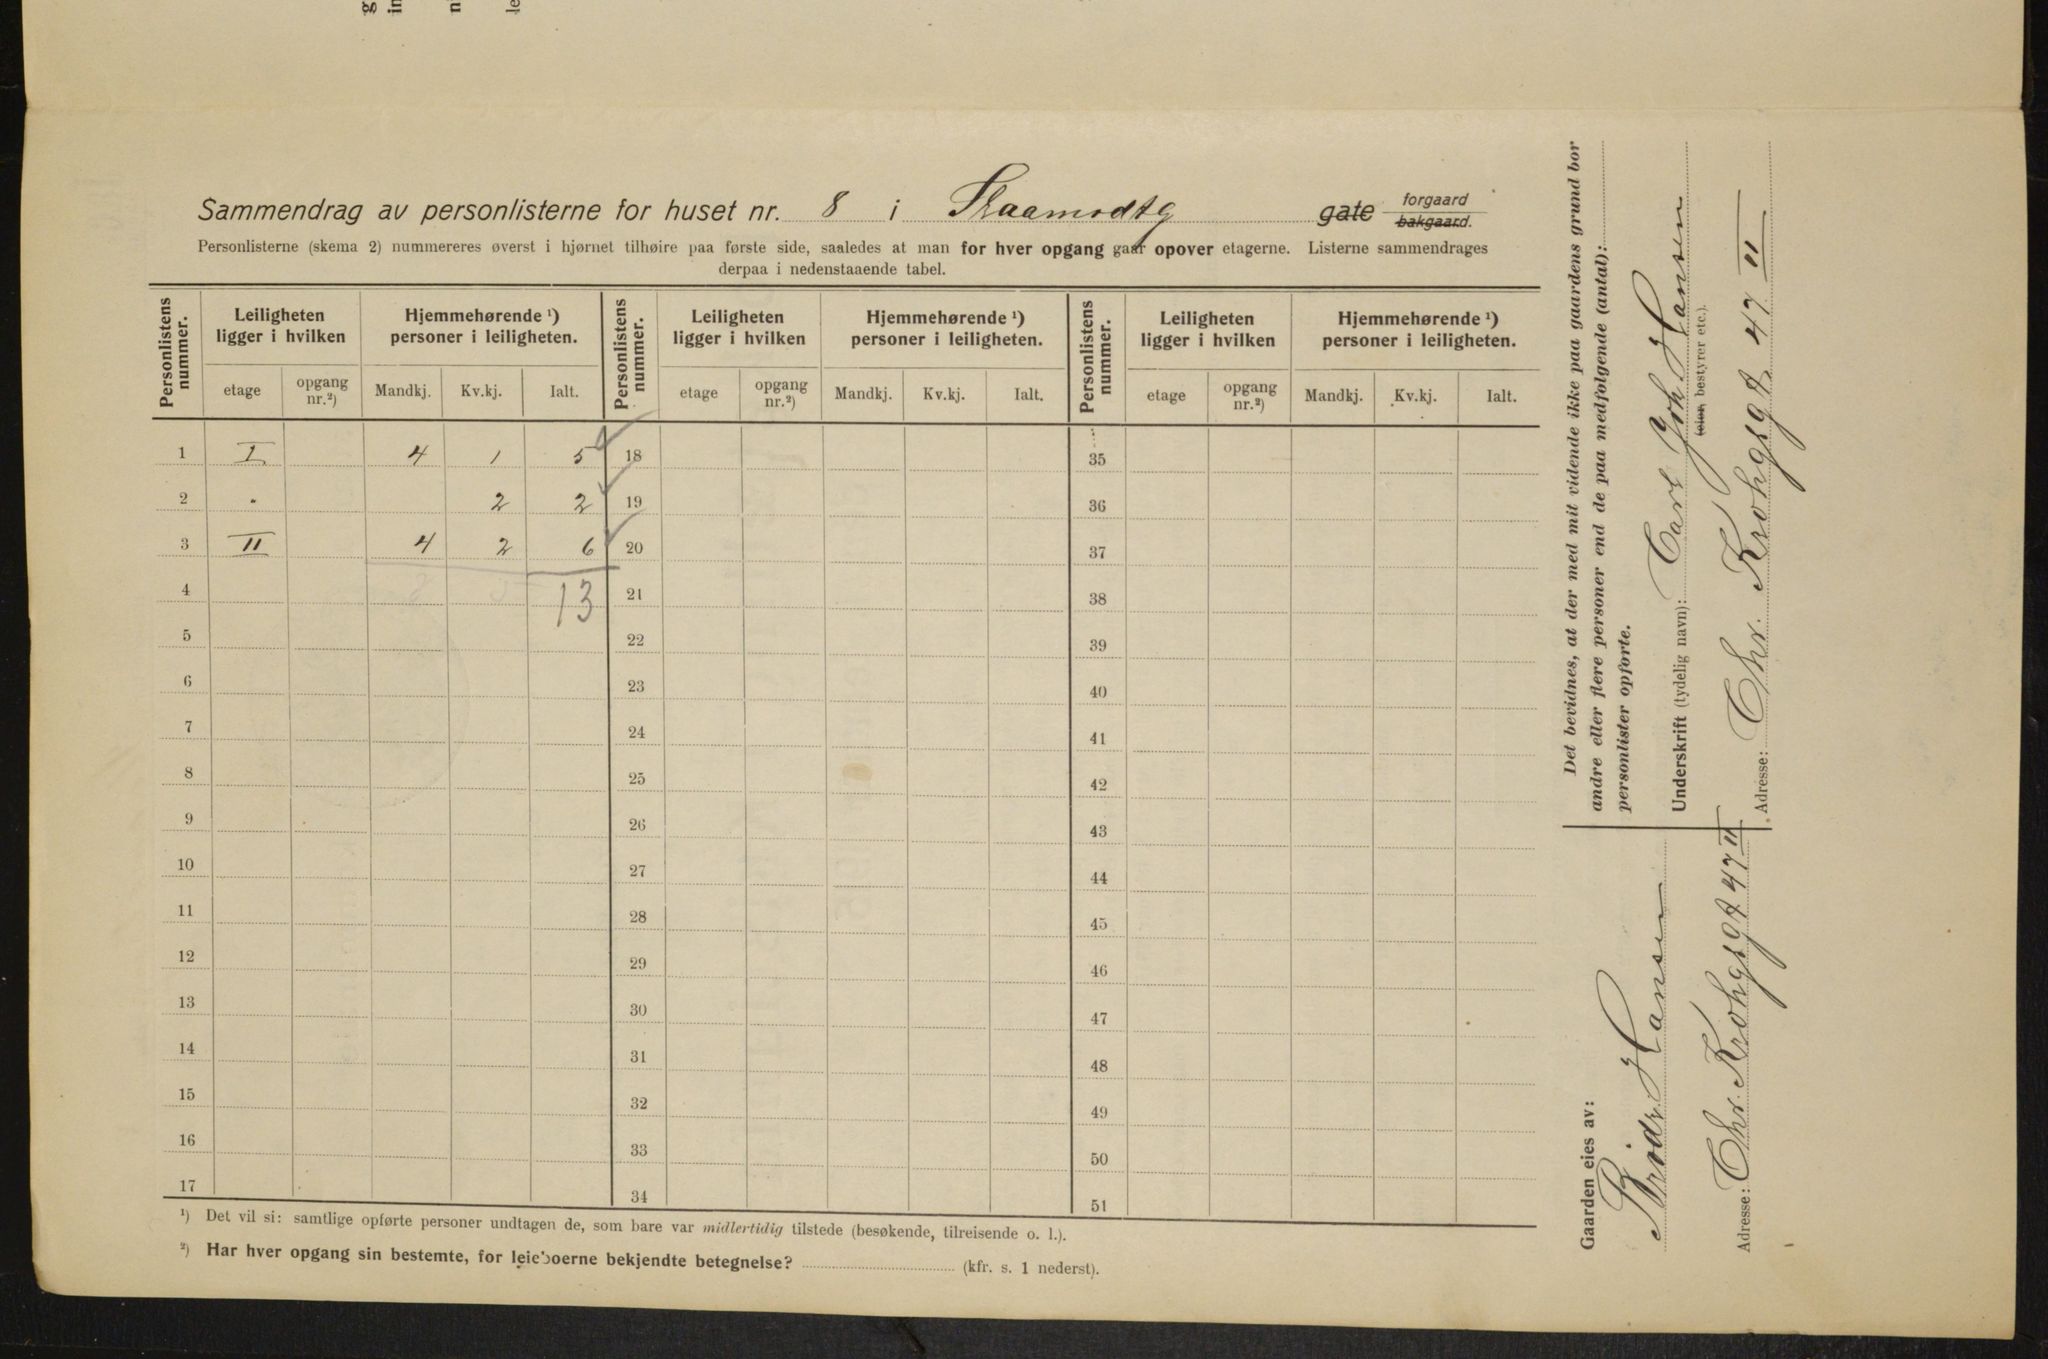 Sammendrag av personlisterne for huset nr. 8 i gate forgaard
bakgaard.
Personlisterne (skema 2) nummereres øverst i hjørnet tilhøire paa første side, saaledes at man for hver opgang gaar opover etagerne. Listerne sammendrages
derpaa i nedenstaaende tabel.
Personlistens nummer. Leiligheten ligger i hvilken Hjemmehørende ¹) personer i leiligheten. Personlistens nummer. Leiligheten ligger i hvilken Hjemmehørende ¹) personer i leiligheten. Personlistens nummer. Leiligheten ligger i hvilken Hjemmehørende ¹) personer i leiligheten.
etage opgang nr.²) Mandkj. Kv.kj. Ialt. etage opgang nr.²) Mandkj. Kv.kj. Ialt. etage opgang nr.²) Mandkj. Kv.kj. Ialt.
1 I 4 1 5 18 35
2 " 2 2 19 36
3 II 4 2 6 20 37
4 8 5 13 21 38
5 22 39
6 23 40
7 24 41
8 25 42
9 26 43
10 27 44
11 28 45
12 29 46
13 30 47
14 31 48
15 32 49
16 33 50
17 34 51
¹) Det vil si: samtlige opførte personer undtagen de, som bare var midlertidig tilstede (besøkende, tilreisende o. l.).
²) Har hver opgang sin bestemte, for leieboerne bekjendte betegnelse? (kfr. s. 1 nederst).
Det bevidnes, at der med mit vidende ikke paa gaardens grund bor
andre eller flere personer end de paa medfølgende (antal):
personlister opførte.
Underskrift (tydelig navn): Carl Joh. Hansen
(eier, bestyrer etc.).
Adresse: Chr. Krohgsgt. 47 II
Gaarden eies av:
Brødr. Hansen
Adresse: Chr. Krohgsgt 47 II